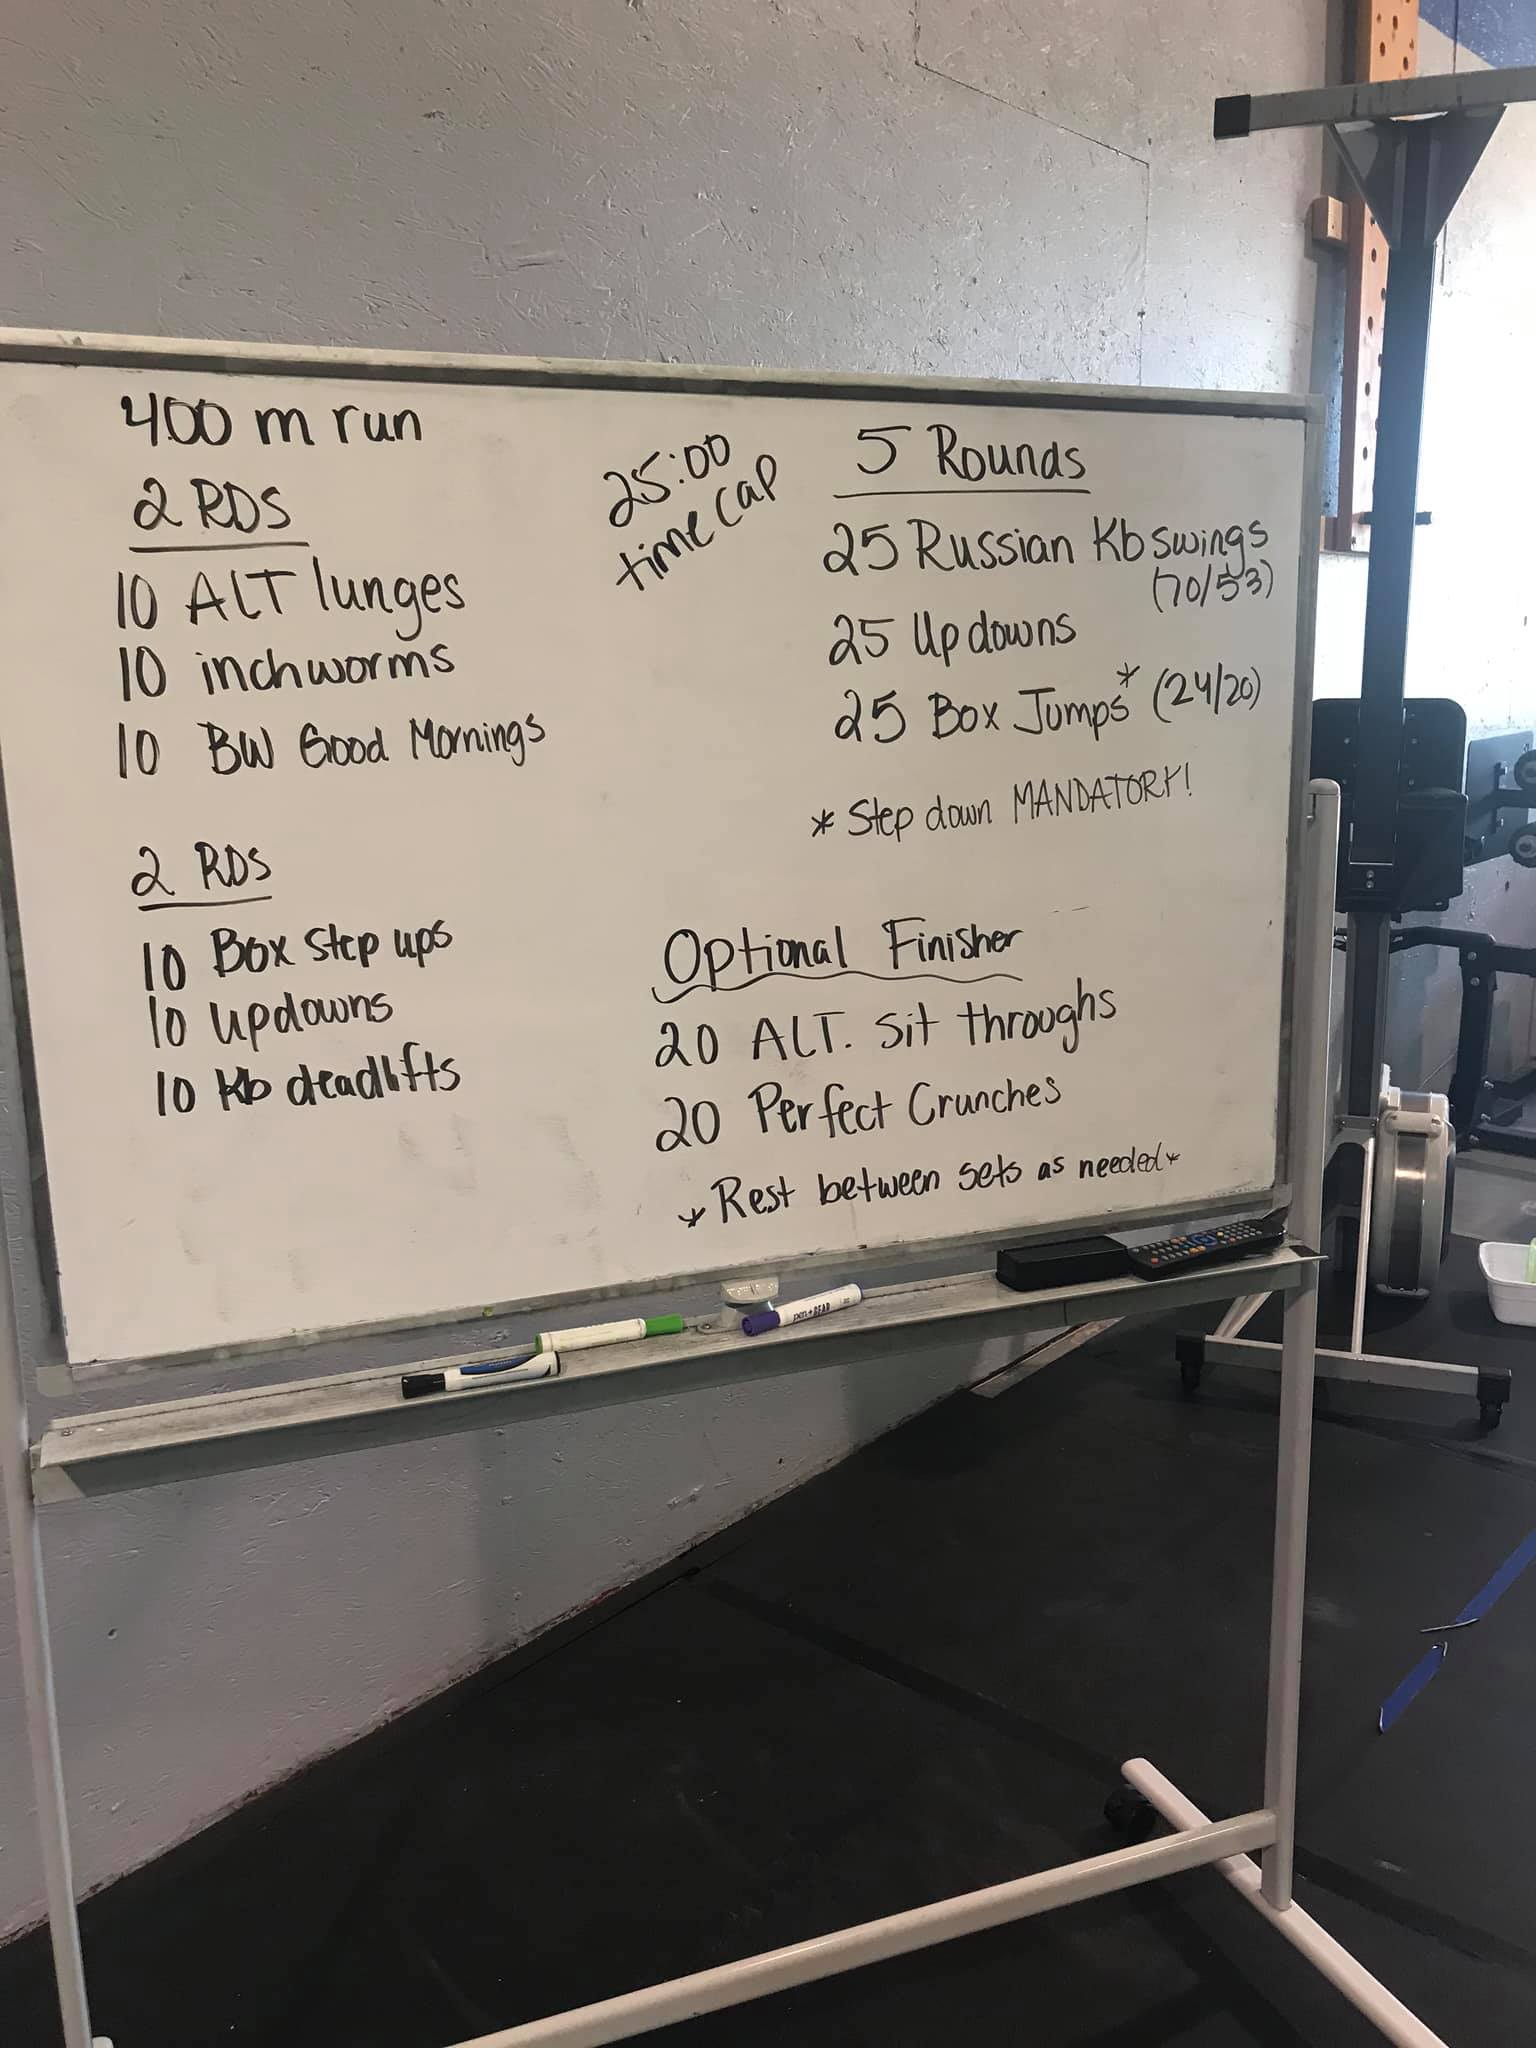 400 m run
2 RDS
10 ALT lunges
10 inchworms
10 BW Good Mornings
2 RDS
10 Box step ups
10 updowns
10 Kb deadlifts
25:00
time cap
5 Rounds
25 Russian Kb swings
(70/53)
25 Up downs
25 Box Jumps* (24/20)
* Step down MANDATORY!
Optional Finisher
20 ALT. sit throughs
20 Perfect Crunches
* Rest between sets as needed *
pen+GEAR